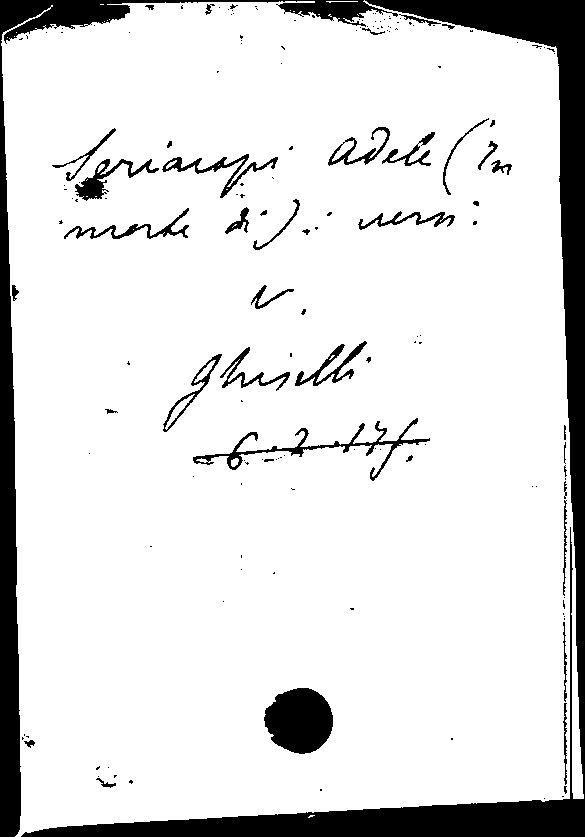 Seriacopi Adele (In
morte di) : versi:
v.
Ghiselli
6.2.175.